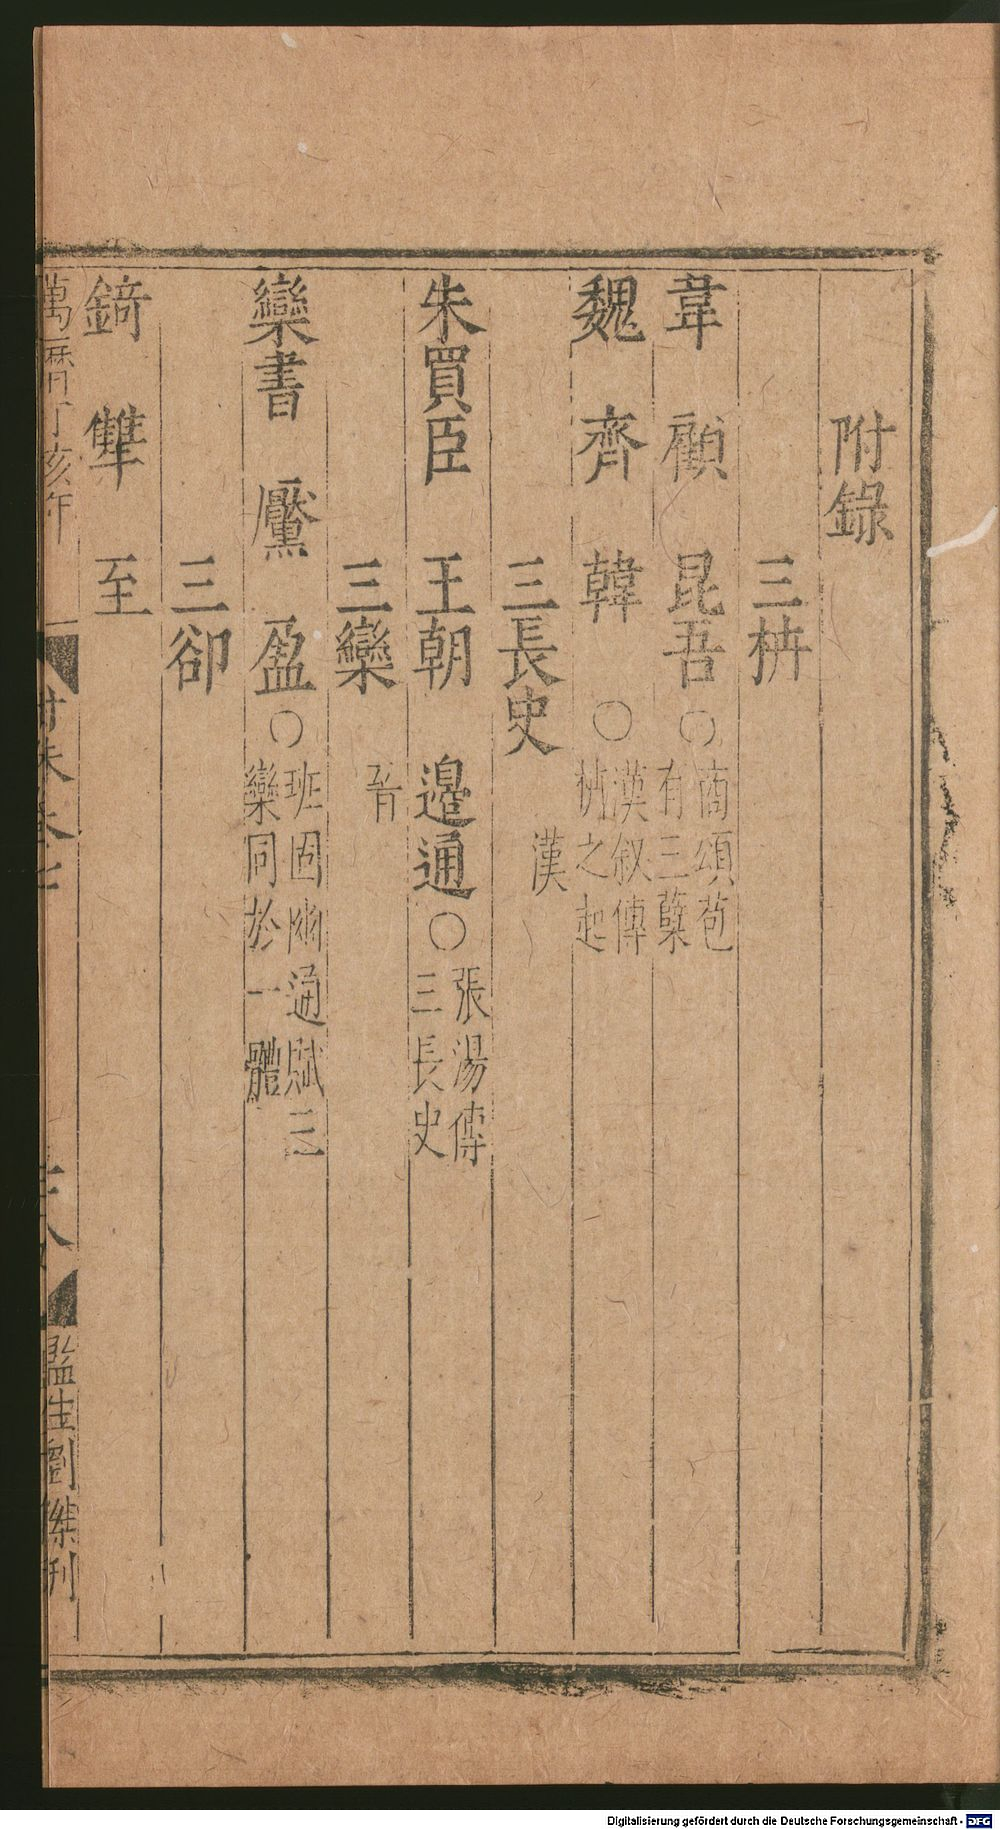 附錄
三枿
韋 顧 昆吾○商頌苞有三蘖
魏 齊 韓 ○漢叙傳枿之起
三長史 漢
朱買臣 王朝 邉通○張湯傳三長史
三欒 晉
欒書 黶 盈○班固幽通賦三欒同於一體
三郤
錡 犨 至
萬曆丁亥年
監生劉傑刊
Digitalisierung gefördert durch die Deutsche Forschungsgemeinschaft - DFG